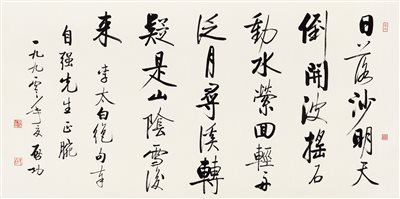 日落沙明天
倒開波搖石
動水縈回輕舟
泛月尋溪轉
疑是山陰雪後
來 李太白絕句奉
自強先生正腕
一九九零年夏 啟功